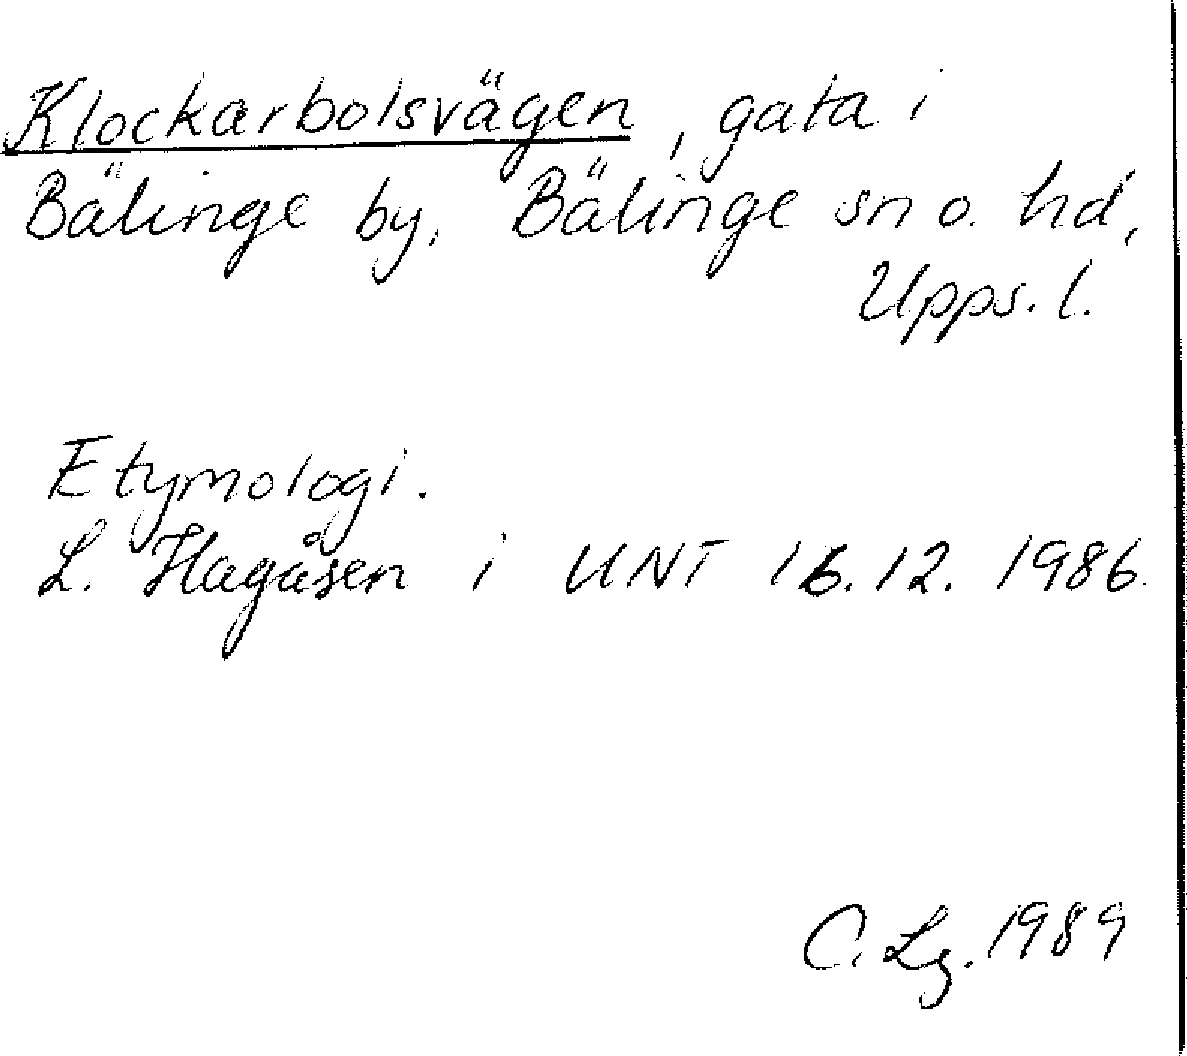 Klockarbolsvägen, gata i
Bälinge by, Bälinge sn o. hd,
Upps. l.
Etymologi.
L. Hagåsen i UNT 16.12. 1986.
C. Lg. 1989